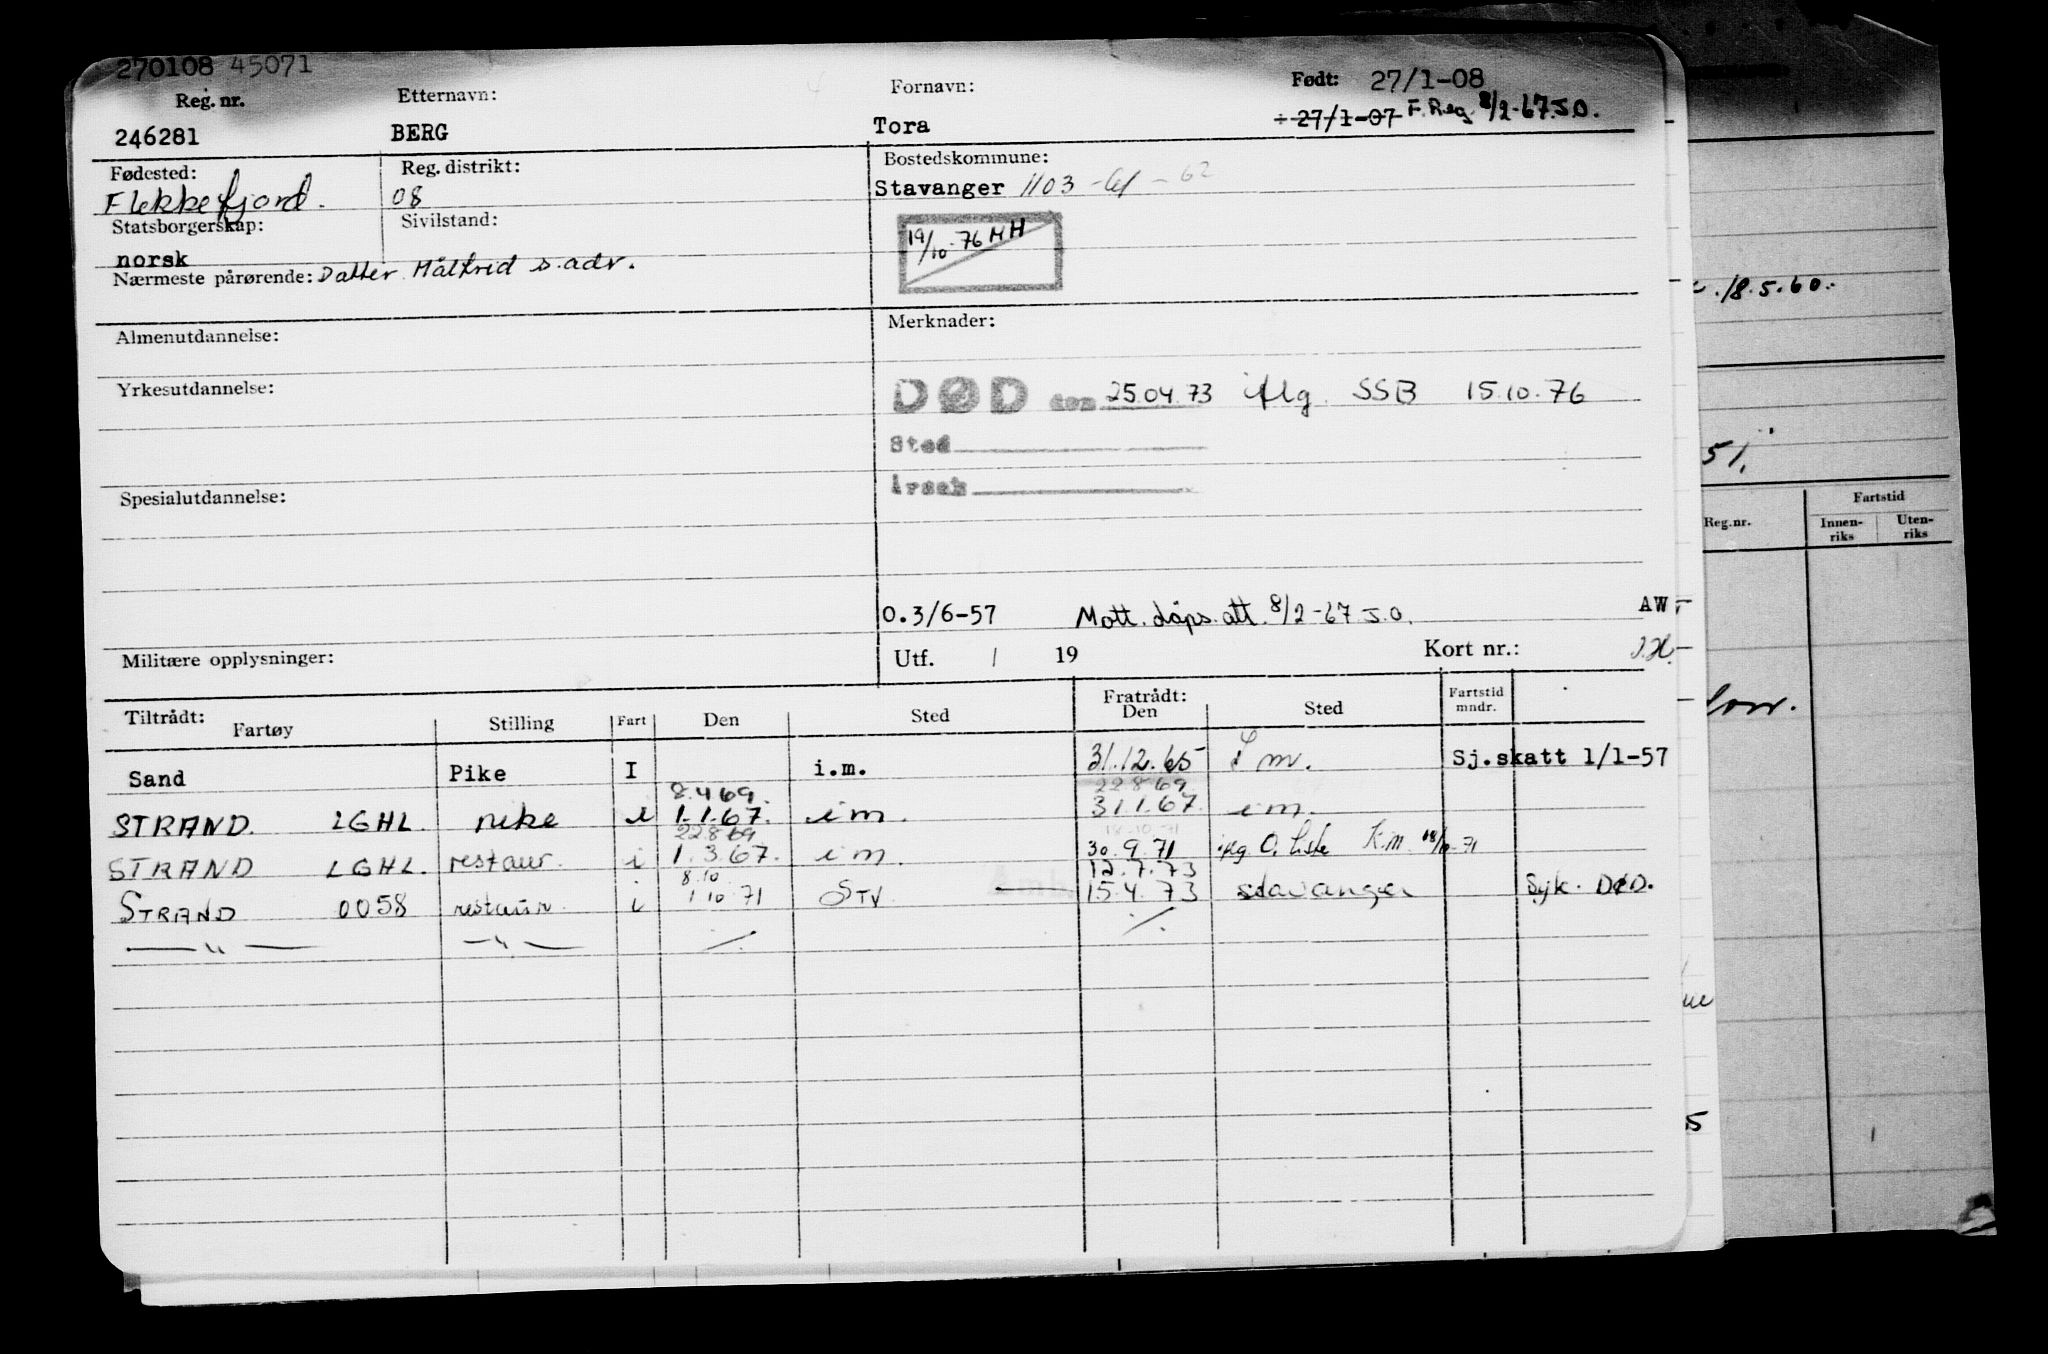 270108 45071
Reg. nr. Etternavn: Fornavn: Født: 27/1-08
246281 BERG Tora ÷ 27/1-07 F. Reg. 8/2-67 J.O.
Fødested: Reg. distrikt: Bostedskommune:
Flekkefjord. 08 Stavanger 1103 -61 - 62
Statsborgerskap: Sivilstand:
norsk 19/10-76 MH
Nærmeste pårørende: Datter Målfrid s. adr.
Almenutdannelse: Merknader:
Yrkesutdannelse: DØD den 25.04.73 iflg. SSB 15.10.76
Sted
Årsak
Spesialutdannelse:
0.3/6-57 Mott. dåps. att. 8/2-67 J.O. AW
Militære opplysninger: Utf. / 19 Kort nr.:
Tiltrådt: Fratrådt: Fartstid
Fartøy Stilling Fart Den Sted Den Sted mndr.
Sand Pike I i.m. 31.12.65 i m. Sj.skatt 1/1-57
8.4 69. 22 8 69
STRAND. LGHL. pike i 1.1.67. i m. 31.1.67. i m.
22 8 69 18.10.71
STRAND LGHL. restaur. i 1.3.67. i m. 30.9.71 iflg. O. liste K.m. 18/10-71
8.10 12.7.73
STRAND 0058 restaur. i 1 10 71 STV 15.4.73 stavanger Syk. DØD.
— " — — " — ./. ./.
18.5.60.-
51.
Reg.nr. Fartstid
Innen-riks Uten-riks
5